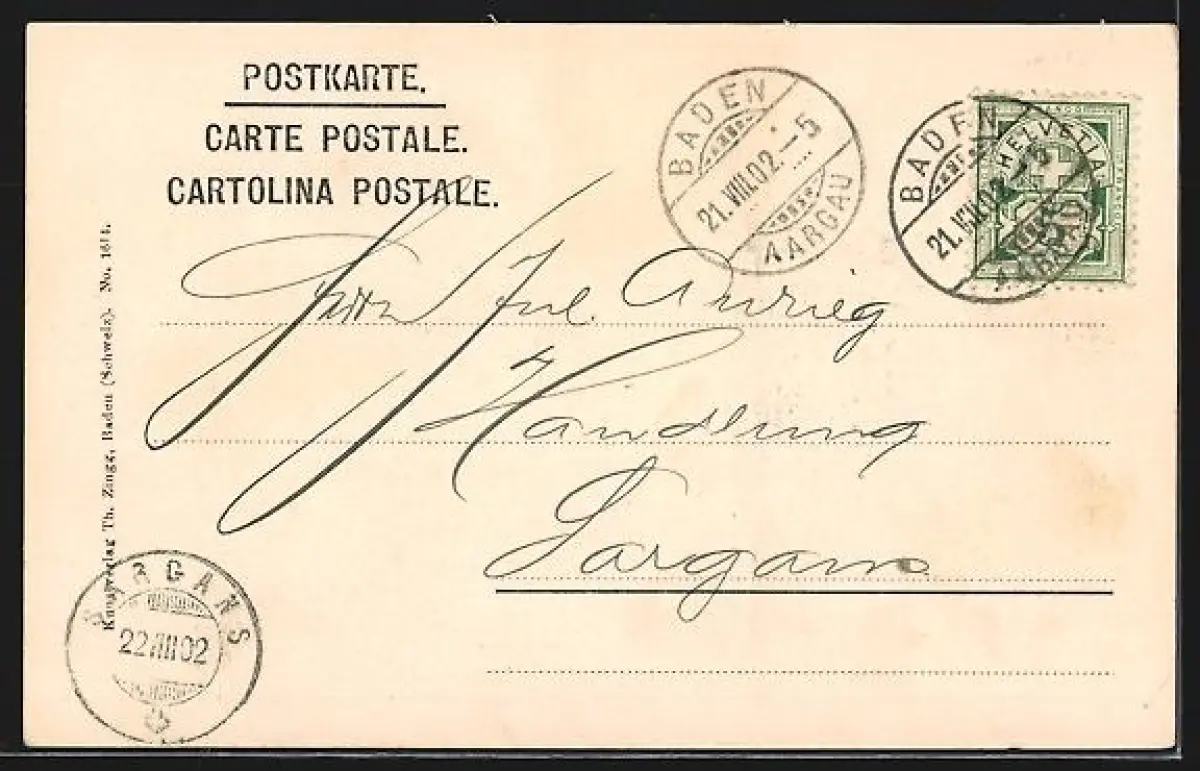 POSTKARTE.
CARTE POSTALE.
CARTOLINA POSTALE.
BADEN
21.VIII.02.-5
AARGAU
BADEN
21.VIII.02.-5
AARGAU
HELVETIA
Herrn Jul.
Handlung
Sargans
Kunstverlag Th. Zingg, Baden (Schweiz). No.
SARGANS
22.VIII.02